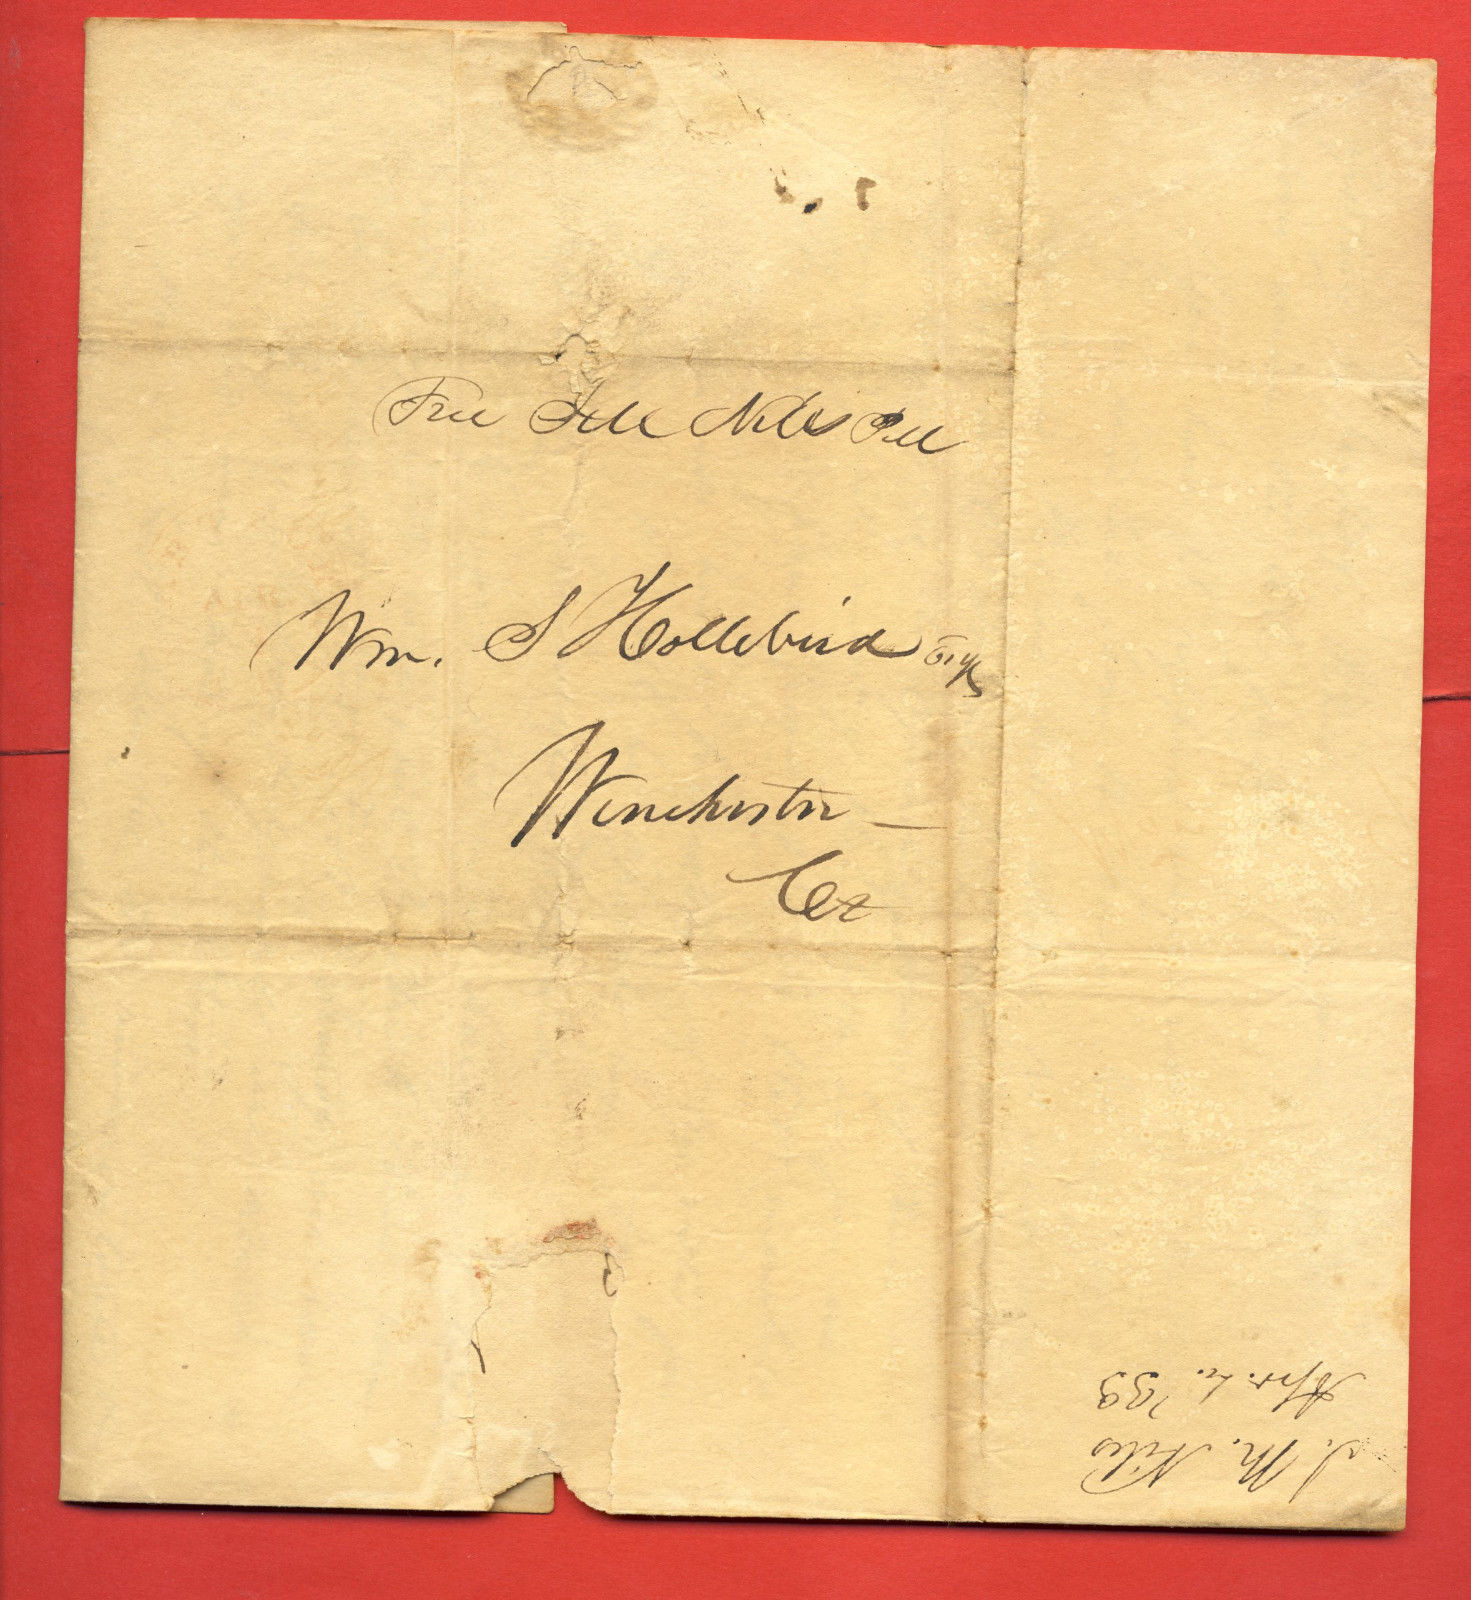 Free JM Niles PM
Wm. S Hollebird Esq
Winchester —
Ct
J. M. Niles
Apr. '33